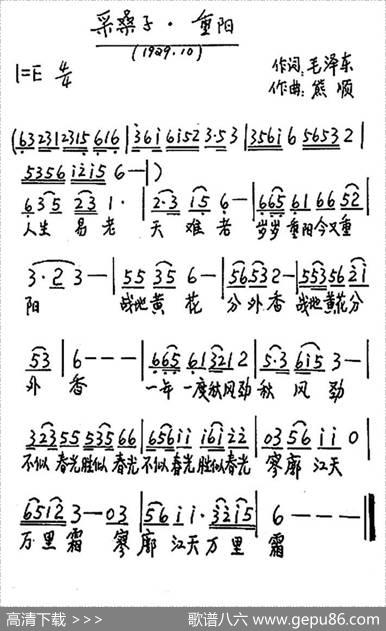 采桑子·重阳
(1929.10)
1=E 4/4
作词:毛泽东
作曲:熊顺
(6323 12315 616 | 36i 6i52 3·53 | 356i 6 5653 2 |
5356 i2i5 6 — | )
635 23 1· | 2·3 i5 6 — | 665 61 66 52 |
人生 易老 天难老 岁岁重阳今又重
3·2 3 — | 55 35 6 — | 56532 — | 553562i |
阳 战地黄花 分外香 战地黄花分
53 | 6 - - - | 665 613212 | 5·3 6i5 3 — |
外香 一年一度秋风劲秋风劲
3235553566 | 656ii i6i22 | 0356 ii 0 |
不似春光胜似春光不似春光胜似春光 寥廓江天
65i2 3—03 | 56 ii·32i5 | 6 — — — ‖
万里霜 寥廓江天万里霜
高清下载 >>>
歌谱八六 www.gepu86.com